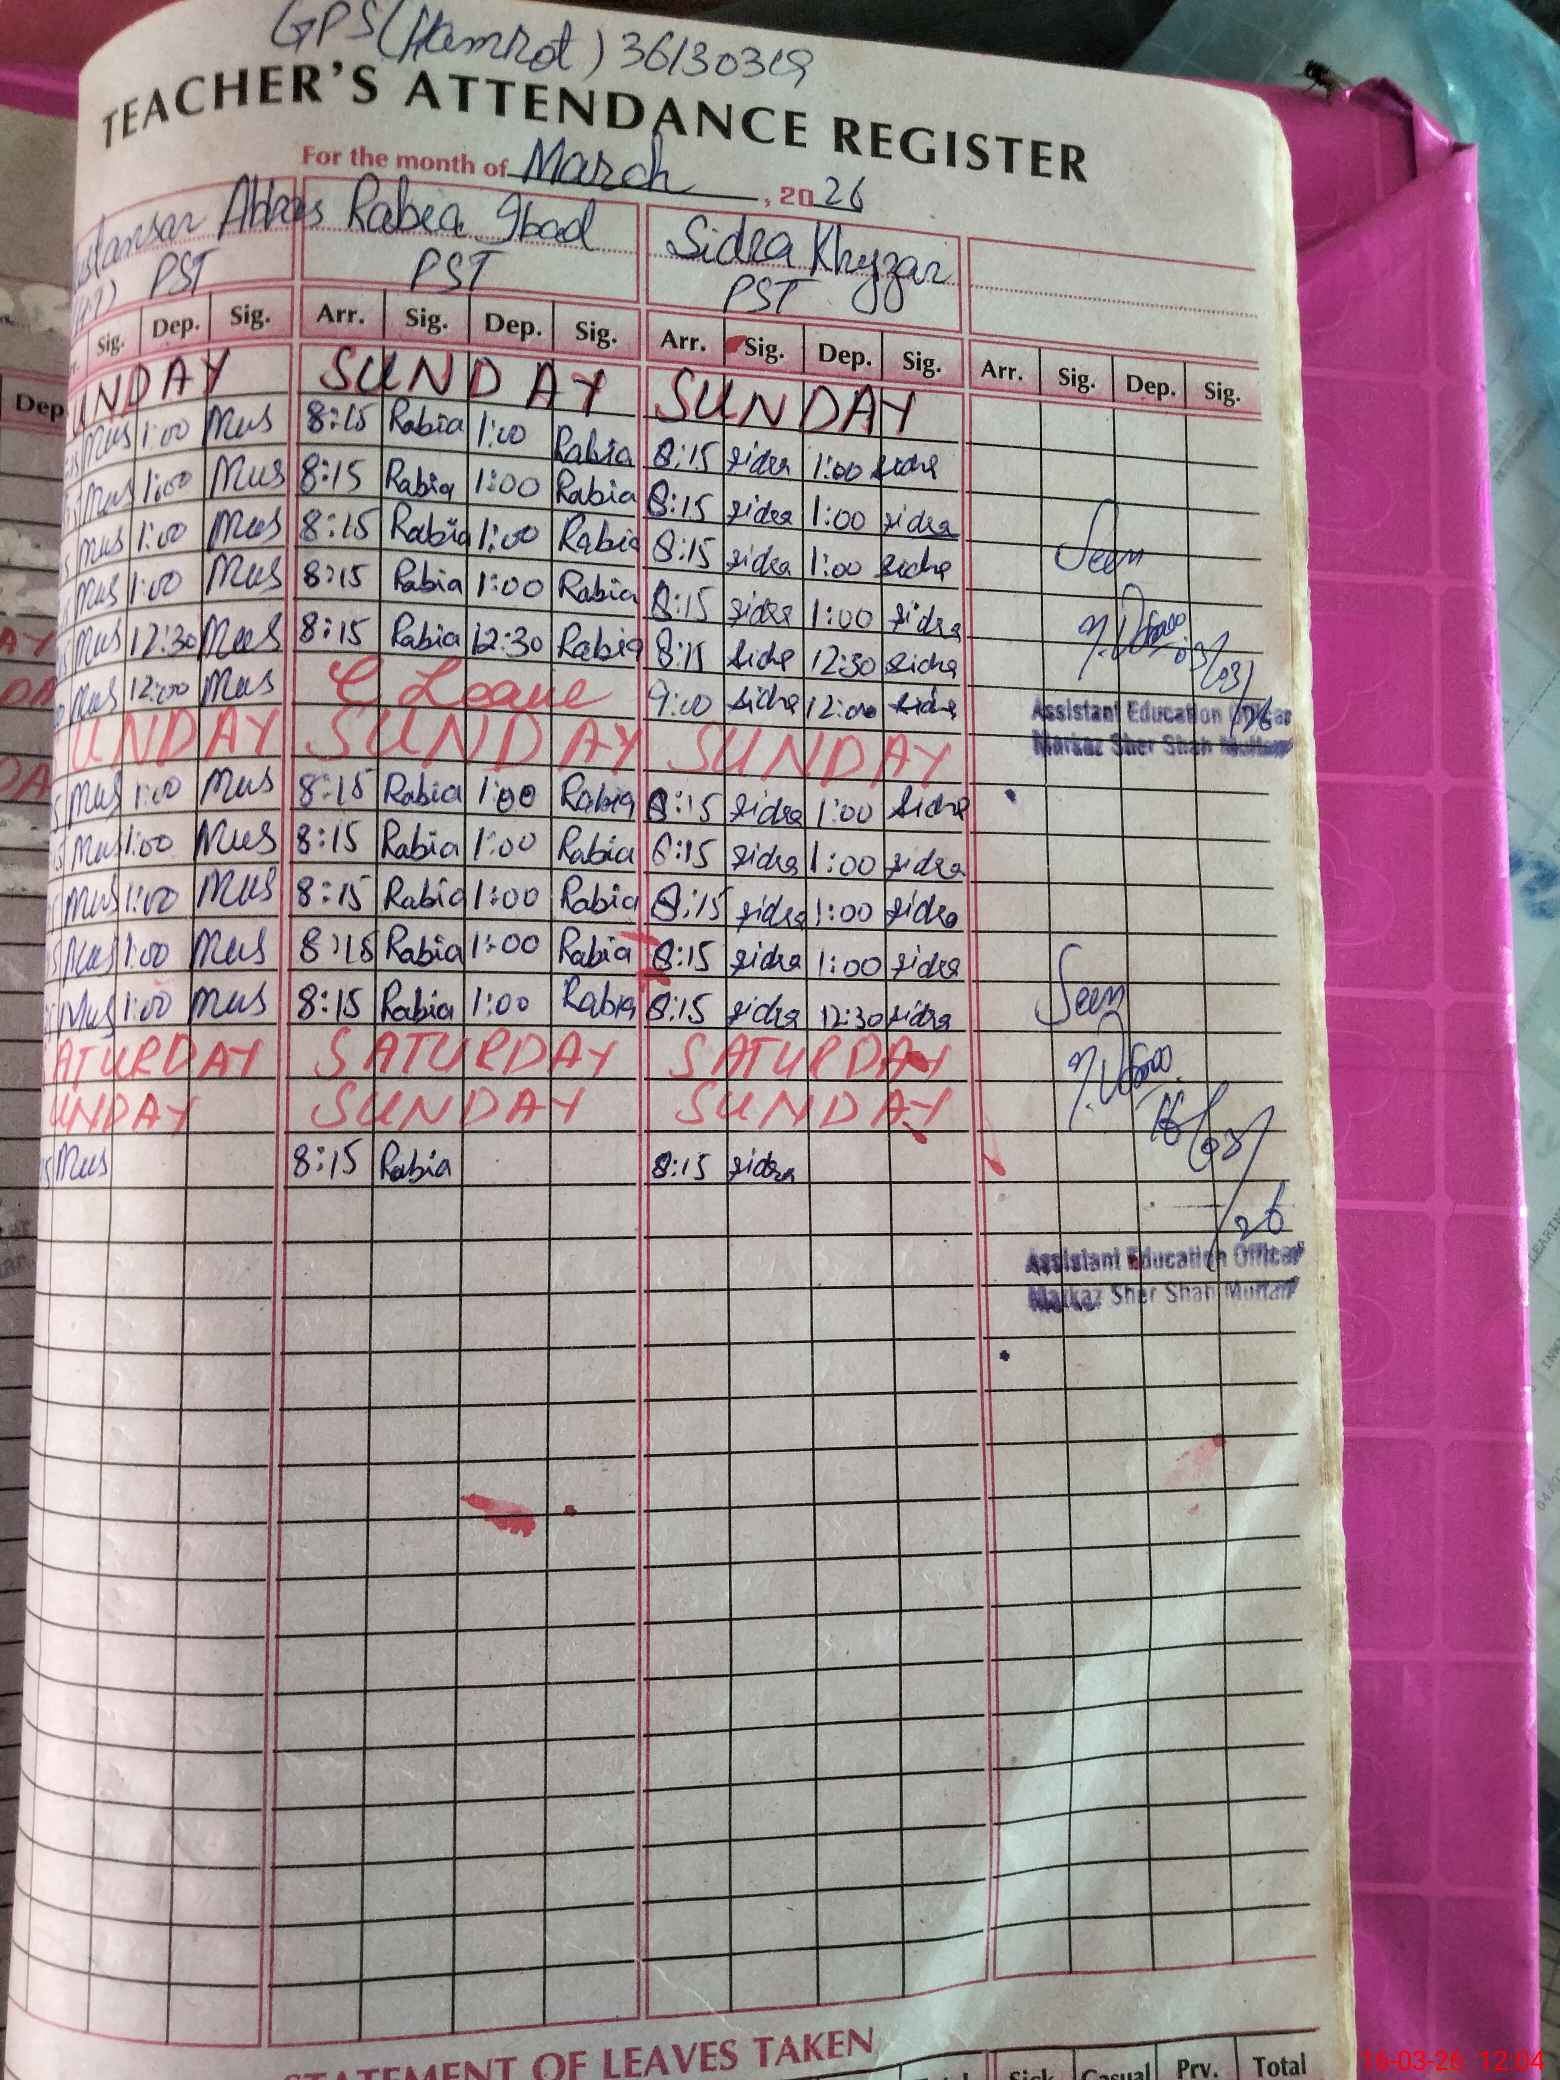 GPS (Hamrot) 36130319
TEACHER'S ATTENDANCE REGISTER
For the month of March, 2026
Abbas Rabia Ibad Sidra Khyzar
PST PST PST
Sig. Dep. Sig. Arr. Sig. Dep. Sig. Arr. Sig. Dep. Sig. Arr. Sig. Dep. Sig.
Dep
UNDAY SUNDAY SUNDAY
Mus 1:00 Mus 8:15 Rabia 1:00 Rabia 8:15 sidra 1:00 sidra
Mus 1:00 Mus 8:15 Rabia 1:00 Rabia 8:15 sidra 1:00 sidra
Mus 1:00 Mus 8:15 Rabia 1:00 Rabia 8:15 sidra 1:00 sidra
Seen
Mus 1:00 Mus 8:15 Rabia 1:00 Rabia 8:15 sidra 1:00 sidra
Mus 12:30 Mus 8:15 Rabia 12:30 Rabia 8:15 sidra 12:30 sidra
03/03/26
Mus 12:00 Mus C Leave 9:00 sidra 12:00 sidra
Assistant Education Officer
Markaz Sher Shah Multan
UNDAY SUNDAY SUNDAY
Mus 1:00 Mus 8:15 Rabia 1:00 Rabia 8:15 sidra 1:00 sidra
Mus 1:00 Mus 8:15 Rabia 1:00 Rabia 8:15 sidra 1:00 sidra
Mus 1:00 Mus 8:15 Rabia 1:00 Rabia 8:15 sidra 1:00 sidra
Mus 1:00 Mus 8:15 Rabia 1:00 Rabia 8:15 sidra 1:00 sidra
Mus 1:00 Mus 8:15 Rabia 1:00 Rabia 8:15 sidra 12:30 sidra
Seen
ATURDAY SATURDAY SATURDAY
UNDAY SUNDAY SUNDAY
16/03/26
Mus 8:15 Rabia 8:15 sidra
Assistant Education Officer
Markaz Sher Shah Multan
STATEMENT OF LEAVES TAKEN
Sick Casual Prv. Total
16-03-26 12:04